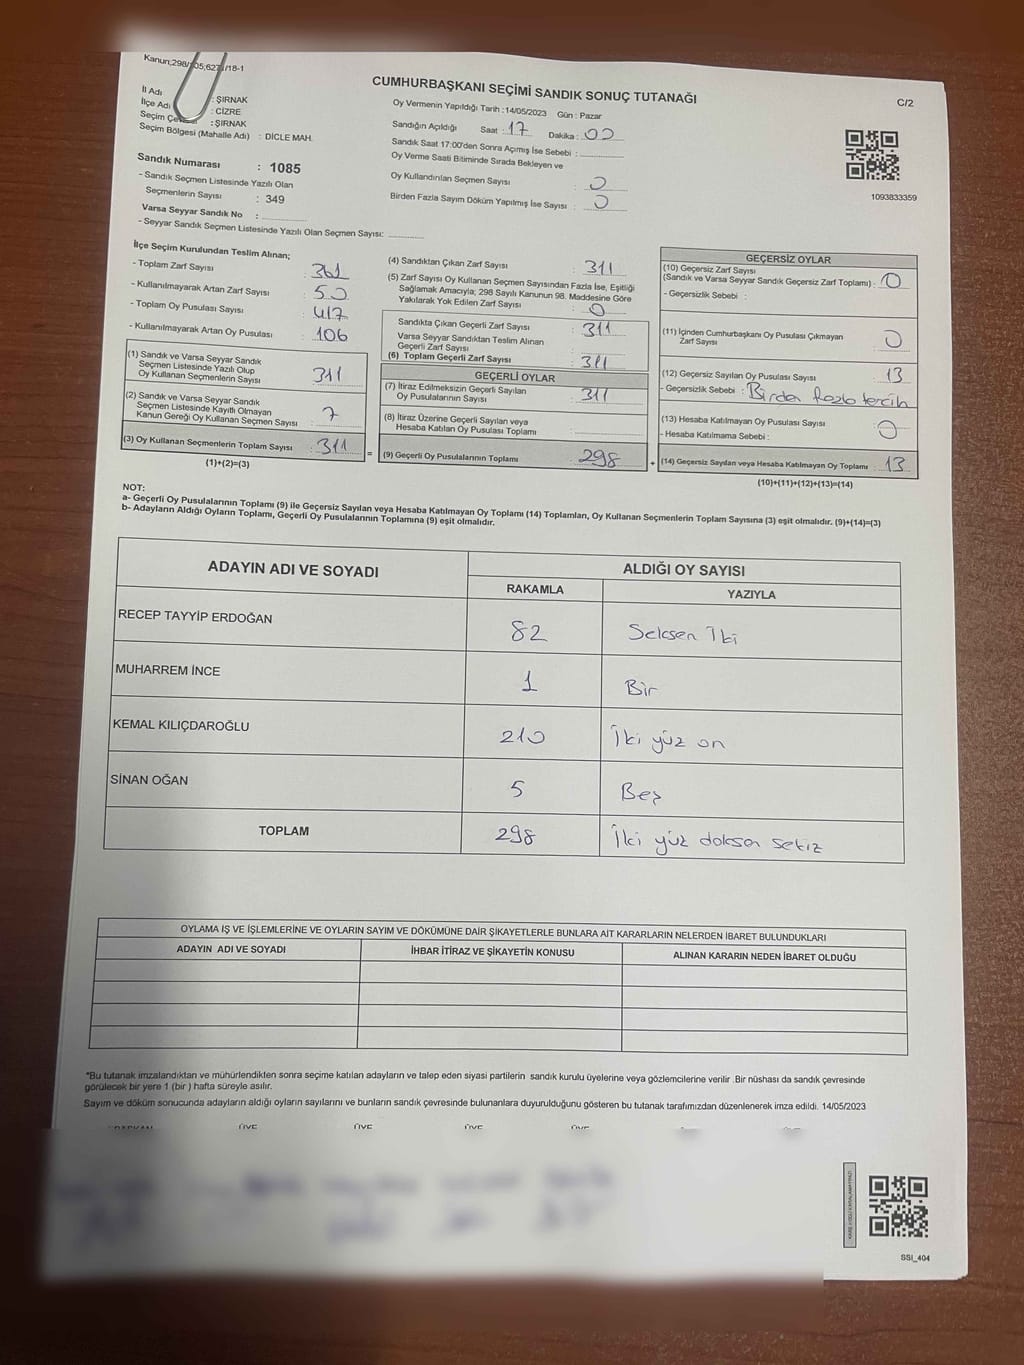 Kanun;298/105;6271/18-1
CUMHURBAŞKANI SEÇİMİ SANDIK SONUÇ TUTANAĞI
C/2
İl Adı : ŞIRNAK
İlçe Adı : CİZRE
Seçim : ŞIRNAK
Seçim Bölgesi (Mahalle Adı) : DİCLE MAH.
Oy Vermenin Yapıldığı Tarih :14/05/2023 Gün : Pazar
Sandığın Açıldığı Saat : 17 Dakika : 00
Sandık Saat 17:00'den Sonra Açmış İse Sebebi :
Oy Verme Saati Bitiminde Sırada Bekleyen ve
Oy Kullandırılan Seçmen Sayısı : 0
Birden Fazla Sayım Döküm Yapılmış İse Sayısı : 0
1093833359
Sandık Numarası : 1085
- Sandık Seçmen Listesinde Yazılı Olan
Seçmenlerin Sayısı : 349
Varsa Seyyar Sandık No :
- Seyyar Sandık Seçmen Listesinde Yazılı Olan Seçmen Sayısı:
İlçe Seçim Kurulundan Teslim Alınan;
- Toplam Zarf Sayısı : 361
- Kullanılmayarak Artan Zarf Sayısı : 50
- Toplam Oy Pusulası Sayısı : 417
- Kullanılmayarak Artan Oy Pusulası : 106
(1) Sandık ve Varsa Seyyar Sandık
Seçmen Listesinde Yazılı Olup
Oy Kullanan Seçmenlerin Sayısı : 311
(2) Sandık ve Varsa Seyyar Sandık
Seçmen Listesinde Kayıtlı Olmayan
Kanun Gereği Oy Kullanan Seçmen Sayısı : 7
(3) Oy Kullanan Seçmenlerin Toplam Sayısı : 311
(1)+(2)=(3)
(4) Sandıktan Çıkan Zarf Sayısı : 311
(5) Zarf Sayısı Oy Kullanan Seçmen Sayısından Fazla İse, Eşitliği
Sağlamak Amacıyla; 298 Sayılı Kanunun 98. Maddesine Göre
Yakılarak Yok Edilen Zarf Sayısı : 0
Sandıkta Çıkan Geçerli Zarf Sayısı : 311
Varsa Seyyar Sandıktan Teslim Alınan
Geçerli Zarf Sayısı :
(6) Toplam Geçerli Zarf Sayısı : 311
GEÇERLİ OYLAR
(7) İtiraz Edilmeksizin Geçerli Sayılan
Oy Pusulalarının Sayısı : 311
(8) İtiraz Üzerine Geçerli Sayılan veya
Hesaba Katılan Oy Pusulası Toplamı :
= (9) Geçerli Oy Pusulalarının Toplamı : 298
GEÇERSİZ OYLAR
(10) Geçersiz Zarf Sayısı
(Sandık ve Varsa Seyyar Sandık Geçersiz Zarf Toplamı) : 0
- Geçersizlik Sebebi :
(11) İçinden Cumhurbaşkanı Oy Pusulası Çıkmayan
Zarf Sayısı : 0
(12) Geçersiz Sayılan Oy Pusulası Sayısı : 13
- Geçersizlik Sebebi : Birden fazla tercih
(13) Hesaba Katılmayan Oy Pusulası Sayısı : 0
- Hesaba Katılmama Sebebi :
+ (14) Geçersiz Sayılan veya Hesaba Katılmayan Oy Toplamı : 13
(10)+(11)+(12)+(13)=(14)
NOT:
a- Geçerli Oy Pusulalarının Toplamı (9) ile Geçersiz Sayılan veya Hesaba Katılmayan Oy Toplamı (14) Toplamları, Oy Kullanan Seçmenlerin Toplam Sayısına (3) eşit olmalıdır. (9)+(14)=(3)
b- Adayların Aldığı Oyların Toplamı, Geçerli Oy Pusulalarının Toplamına (9) eşit olmalıdır.
ADAYIN ADI VE SOYADI
ALDIĞI OY SAYISI
RAKAMLA YAZIYLA
RECEP TAYYİP ERDOĞAN 82 Seksen İki
MUHARREM İNCE 1 Bir
KEMAL KILIÇDAROĞLU 210 İki yüz on
SİNAN OĞAN 5 Beş
TOPLAM 298 İki yüz doksan sekiz
OYLAMA İŞ VE İŞLEMLERİNE VE OYLARIN SAYIM VE DÖKÜMÜNE DAİR ŞİKAYETLERLE BUNLARA AİT KARARLARIN NELERDEN İBARET BULUNDUKLARI
ADAYIN ADI VE SOYADI İHBAR İTİRAZ VE ŞİKAYETİN KONUSU ALINAN KARARIN NEDEN İBARET OLDUĞU
*Bu tutanak imzalandıktan ve mühürlendikten sonra seçime katılan adayların ve talep eden siyasi partilerin sandık kurulu üyelerine veya gözlemcilerine verilir .Bir nüshası da sandık çevresinde
görülecek bir yere 1 (bir ) hafta süreyle asılır.
Sayım ve döküm sonucunda adayların aldığı oyların sayılarını ve bunların sandık çevresinde bulunanlara duyurulduğunu gösteren bu tutanak tarafımızdan düzenlenerek imza edildi. 14/05/2023
BAŞKAN ÜYE ÜYE ÜYE ÜYE
SSI_404